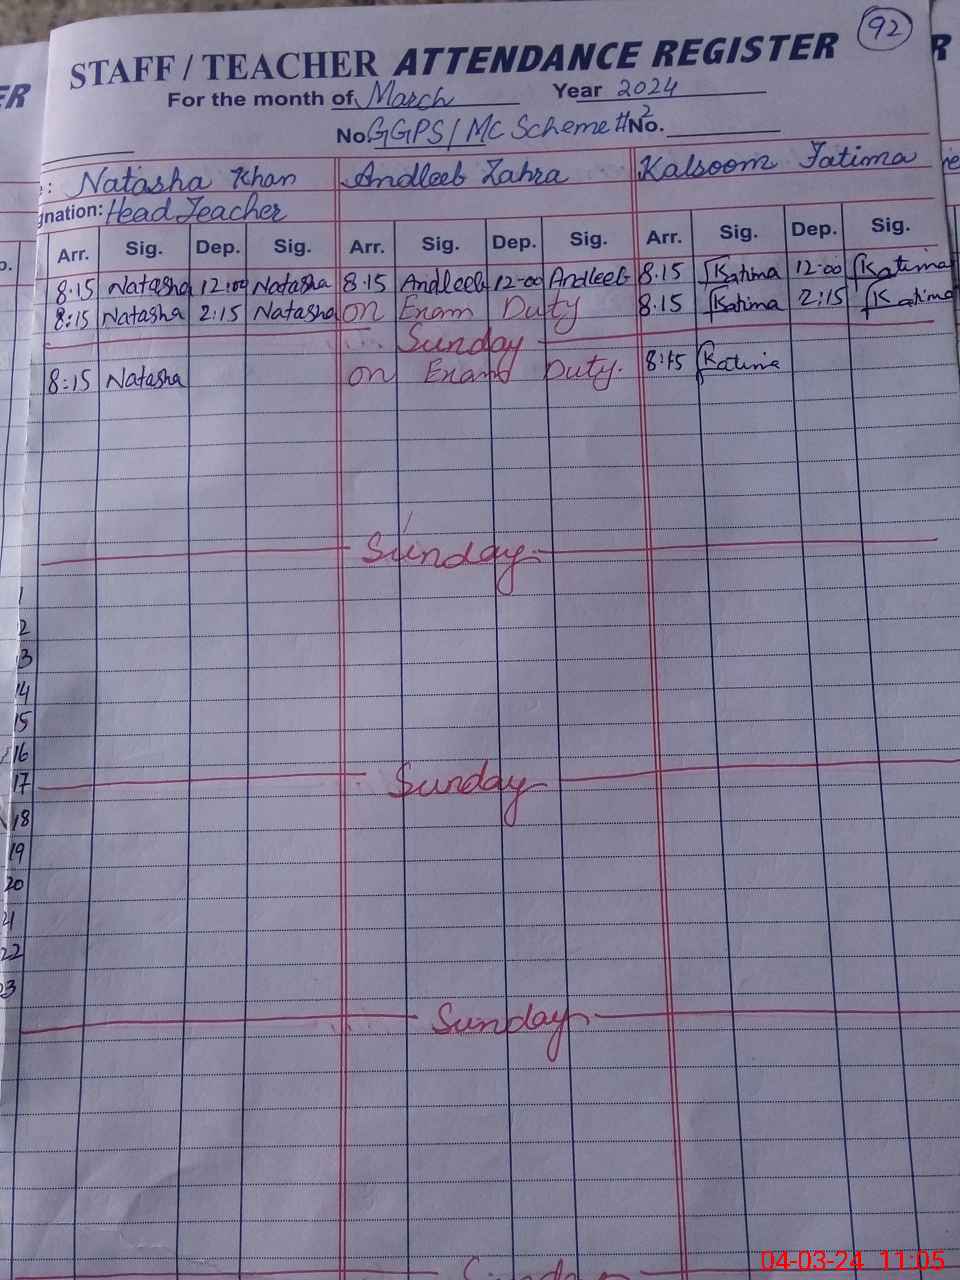 92
STAFF / TEACHER ATTENDANCE REGISTER
For the month of March Year 2024
No GGPS/MC Scheme # 2 No.
: Natasha Khan Andleeb Zahra Kalsoom Fatima
gnation: Head Teacher
Arr. Sig. Dep. Sig. Arr. Sig. Dep. Sig. Arr. Sig. Dep. Sig.
8.15 Natasha 12:00 Natasha 8.15 Andleeb 12-00 Andleeb 8.15 Katima 12-00 Katima
8:15 Natasha 2:15 Natasha on Exam Duty 8.15 Katima 2:15 Katima
Sunday
8:15 Natasha on Exam Duty. 8:15 Katima
Sunday
1
2
3
14
15
16
17 Sunday
18
19
20
21
22
23
Sunday
Sunday
04-03-24 11:05